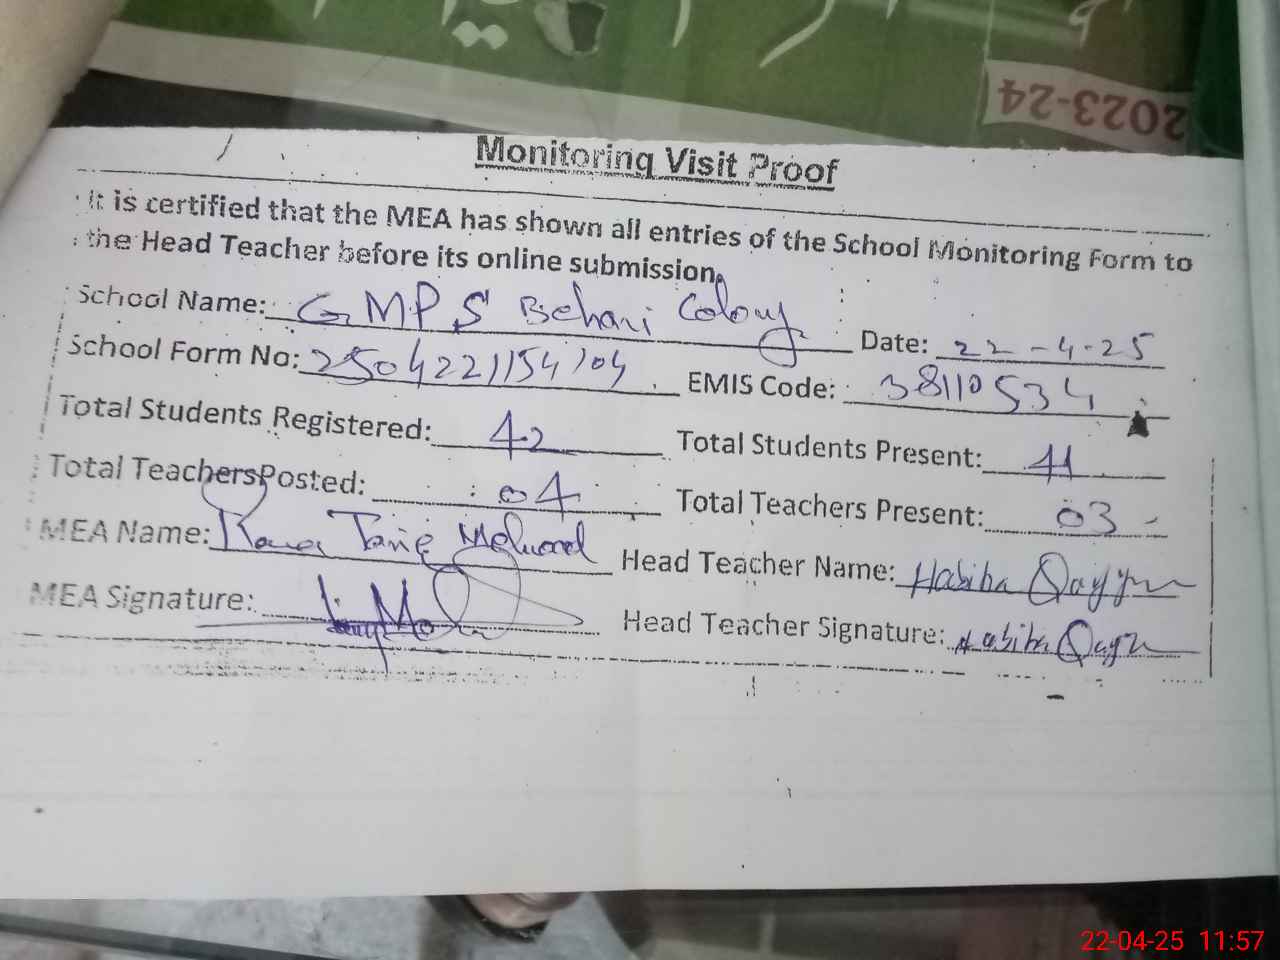 2023-24
Monitoring Visit Proof
It is certified that the MEA has shown all entries of the School Monitoring Form to
the Head Teacher before its online submission.
School Name: GMPS Behari Colony Date: 22-4-25
School Form No: 2504221154704 EMIS Code: 38110534
Total Students Registered: 42 Total Students Present: 41
Total TeachersPosted: 04 Total Teachers Present: 03
MEA Name: Rana Tariq Mehmood Head Teacher Name: Habiba Qayyum
MEA Signature: Head Teacher Signature: Habiba Qayyum
22-04-25 11:57